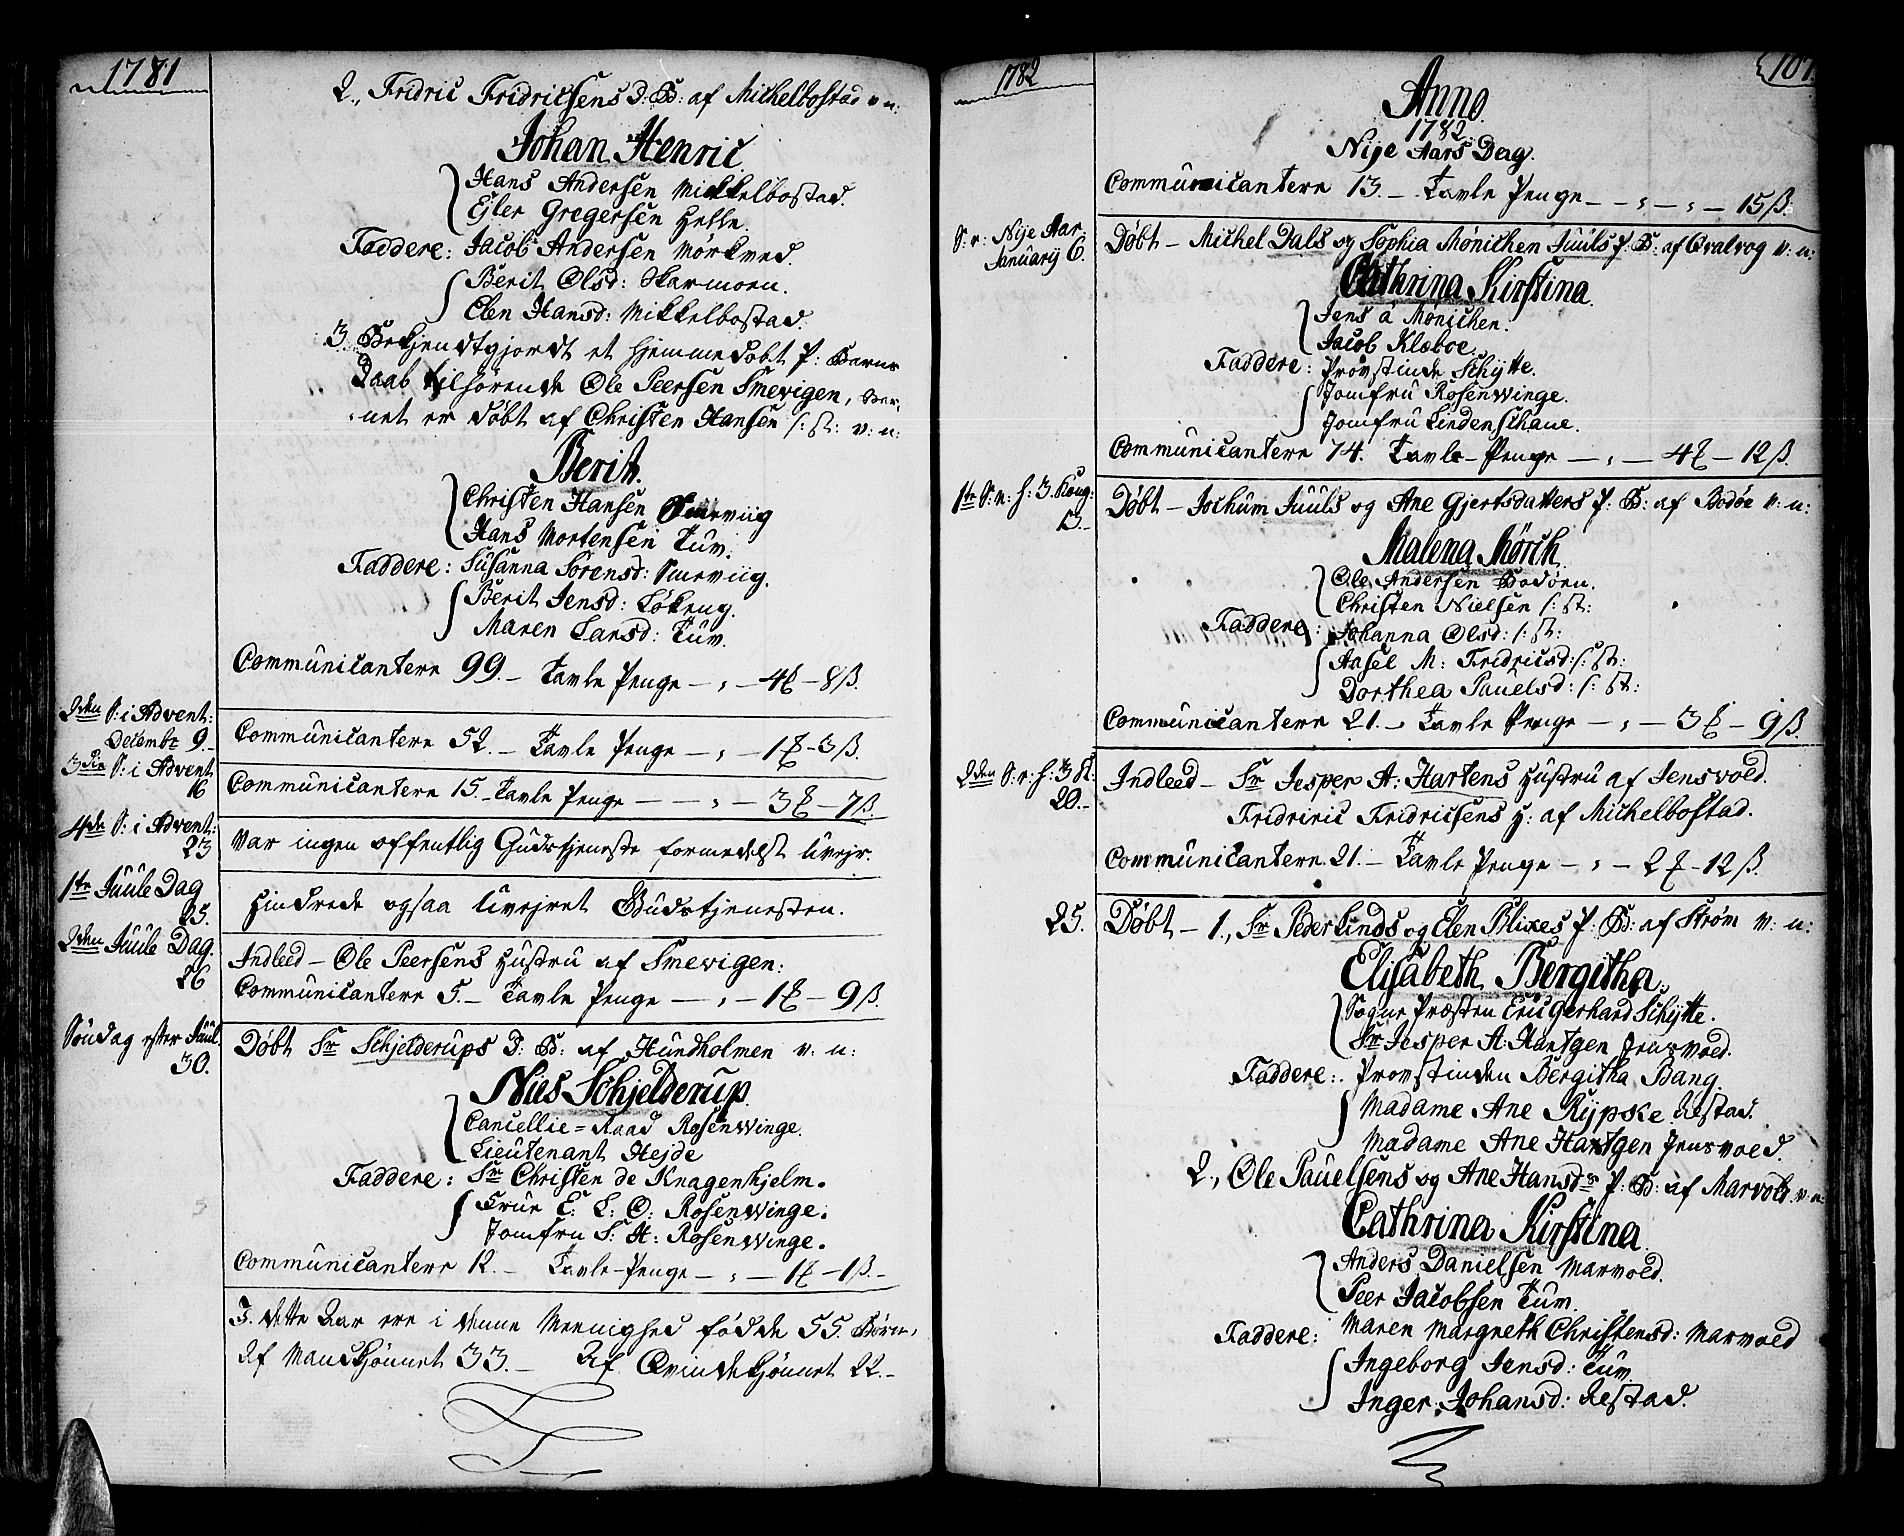 1781
2., Fridric Fridricsens D: B: af Michelbostad v: n:
Johan Henric
Hans Andersen Mikkelbostad.
Ejler Gregersen Helle.
Faddere: Jacob Andersen Mörkved.
Berit Olsd: Skarmoen.
Elen Hansd: Mikkelbostad.
3. Bekjendtgjordt et hjemmedöbt P: Barns
Daab tilhörende Ole Peersen Smevigen, Bar-
net er döbt af Christen Hansen s: st: v: n:
Berit.
Christen Hansen Smeviig
Hans Mortensen Tuv.
Faddere: Susanna Sörensd: Smeviig.
Berit Jensd: Lökeng.
Maren Larsd: Tuv.
Communicantere 99. – Tavle Penge – „ – 4 – 8 ß.
2den S: i Advent:
Decembr 9.
Communicantere 52. – Tavle Penge – „ – 1 – 3 ß.
3die S: i Advent
16
Communicantere 15. – Tavle Penge – – „ – 3 – 7 ß.
4de S: i Advent:
23
Var ingen offentlig Gudstjeneste formedelst Uvejr.
1te Juule Dag
25.
Hindrede ogsaa Uvejret Gudstjenesten.
2den Juule Dag.
26
Indleed – Ole Peersens Hustru af Smevigen:
Communicantere 5. – Tavle Penge – „ – 1 – 9 ß.
Söndag efter Juul
30.
Döbt Sr Schjelderups D: B: af Hundholmen v: n:
Niels Schjelderup.
Cancellie-Raad Rosenwinge.
Lieutenant Hejde
Faddere: Sr Christen de Knagenhjelm.
Frue E: L: O: Rosenwinge.
Jomfru S: H: Rosenwinge.
Communicantere 12. – Tavle-Penge – „ – 1 – 1 ß. –
I dette Aar ere i denne Meenighed födde 55. Börn,
Af Mandkjönnet 33. – Af Qvindekjönnet 22. –
1782
107.
Anno
1782.
Nije Aars Dag.
Communicantere 13. – Tavle Penge – – „ – „ – 15 ß.
S: e: Nije Aar.
January 6.
Døbt – Michel Dals og Sophia Mønichen Juuls P: B: af Qvalvog v: n:
Cathrina Kirstina.
Jens a Monichen.
Jacob Klæboe.
Faddere: Provstinde Schytte.
Jomfru Rosenwinge.
Jomfru Lindenschane.
Communicantere 74. Tavle-Penge – „ – 4 – 12 ß.
1te S: e: h: 3. Kong:
13. –
Døbt – Jochum Juuls og Ane Gjertsdatters P: B: af Bodöe v: n:
Malena Mørch
Ole Andersen Bodöen.
Christen Nielsen s: st:
Faddere: Johanna Olsd: s: st:
Aasel M: Fridricsd: s: st:
Dorthea Pauelsd: s: st:
Communicantere 21. – Tavle Penge – „ – 3 – 9 ß.
2den S: e: h: 3 K:
20. –
Indleed – Sr Jesper A: Hartens Hustru af Jensvold.
Fridriric Fridricsens H: af Michelbostad.
Communicantere 21. – Tavle Penge – „ – 2 – 12 ß.
25.
Døbt – 1., Sr Peder Linds og Elen Blixes P: B: af Strøm v: n:
Elisabeth Bergitha.
Sogne Præsten Eric Gerhard Schytte.
Sr Jesper A: Hartgen Jensvold.
Faddere: Provstinden Bergitha Bang.
Madame Ane Rypske Restad.
Madame Ane Hartgen Jensvold.
2., Ole Pauelsens og Ane Hansdrs P: B: af Marvold v: n:
Cathrina Kirstina
Anders Danielsen Marvold.
Peer Jacobsen Tuv.
Faddere: Maren Margreth Christensd: Marvold
Ingeborg Jensd: Tuv.
Inger Johansd: Restad.